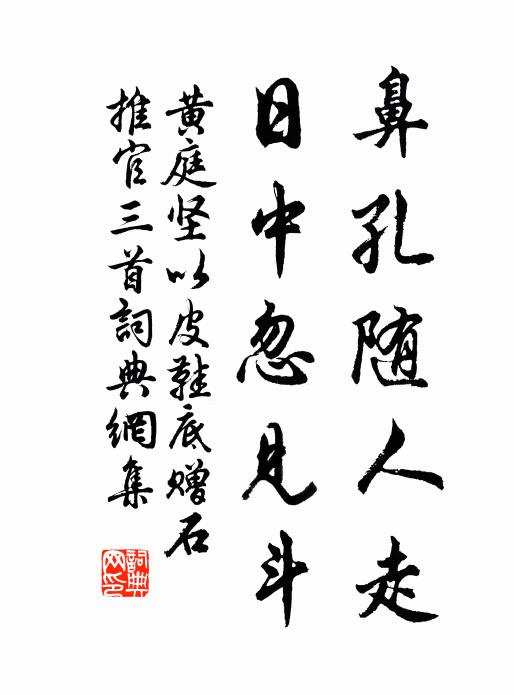 鼻孔随人走
日中忽见斗
黄庭坚以皮鞋底赠石
推官三首詞典網集
詞典
网印